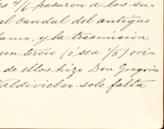 pasaron de los su-
al caudal del antiguo
lamo, y la trasmisión
un tercio (ó sea 1/3)
de ellos hizo Don Gregorio
Valdivielso solo falta